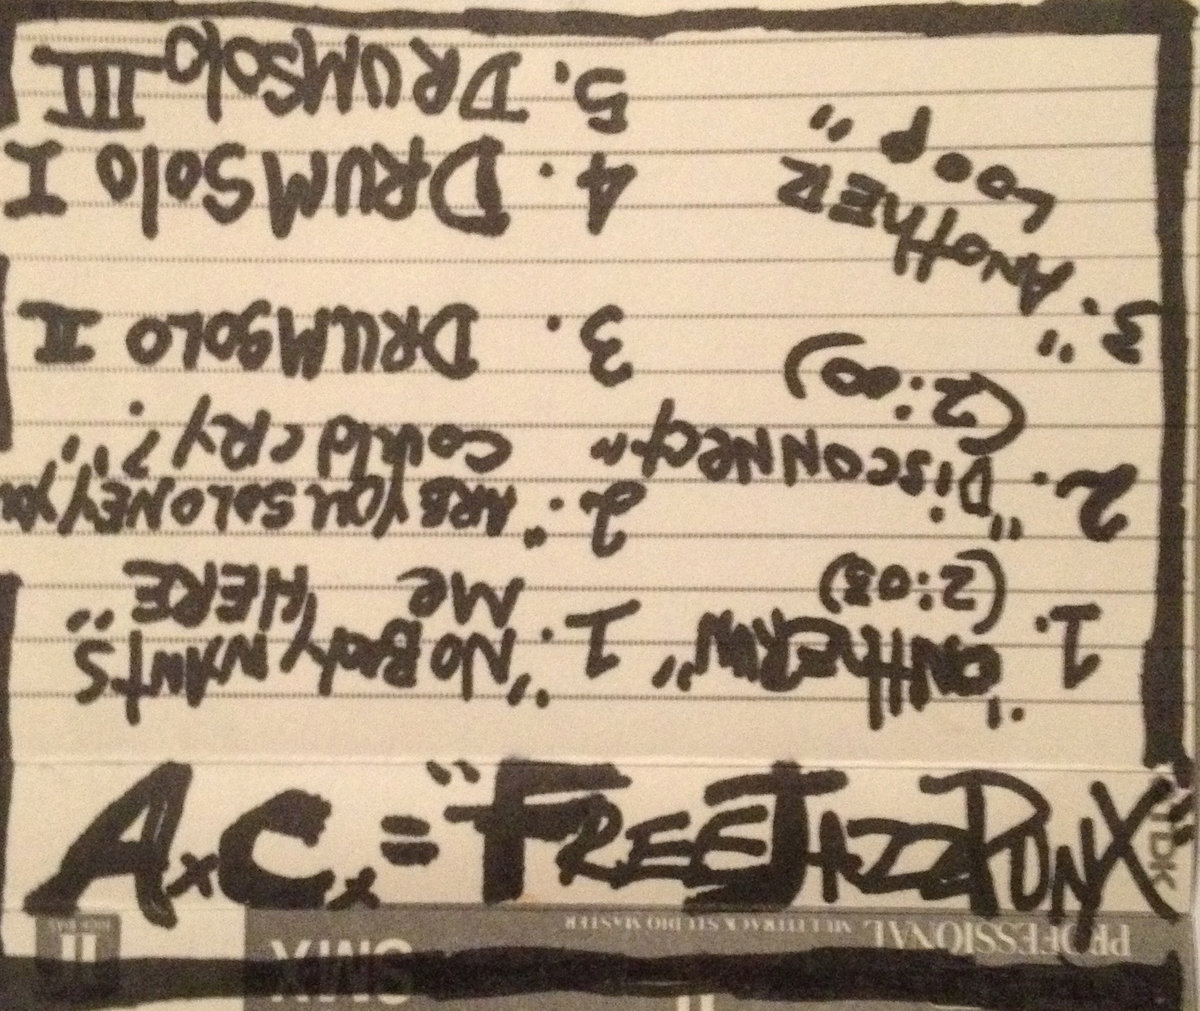 AxCx = "FREEJAZZPUNX"
TDK
PROFESSIONAL MULTITRACK STUDIO MASTER
II
1.
(2:03)
2. "DiSCONNect"
(2:00)
3. "ANOTHER
LOOP"
1. "NOBODY WANTS
Me HERE"
2. "ARE YOU SOLONEY YOU
COULD CRY?"
3. DRUMSOLO II
4. DRUMSolo I
5. DRUMSolo III